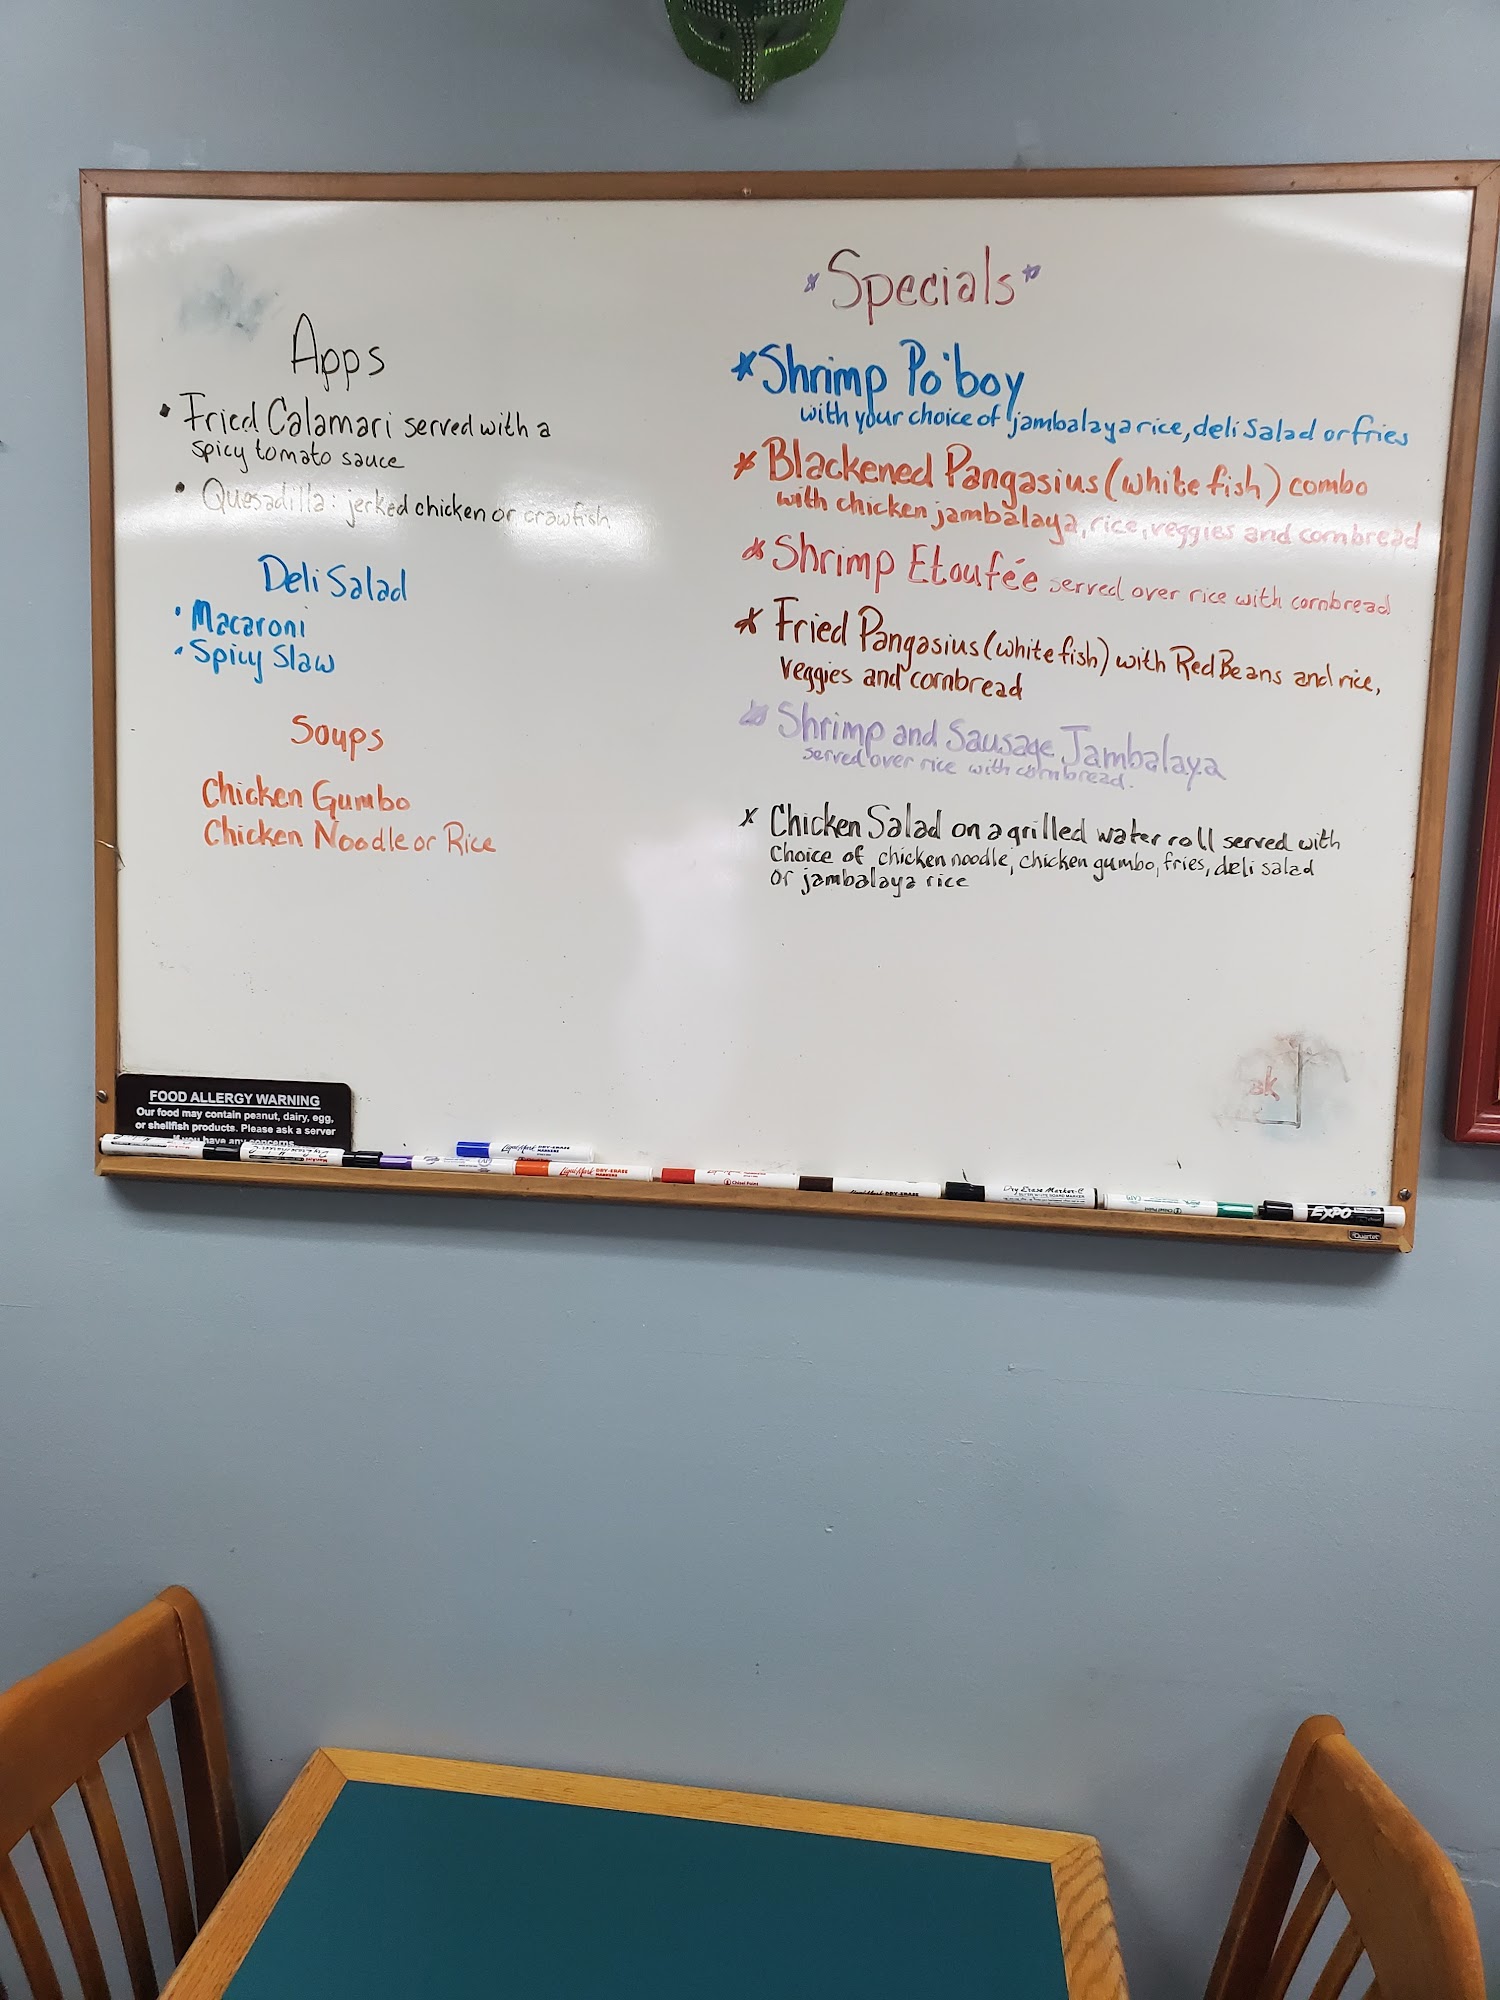 Apps
• Fried Calamari served with a
spicy tomato sauce
• Quesadilla: jerked chicken or crawfish
Deli Salad
• Macaroni
• Spicy Slaw
Soups
Chicken Gumbo
Chicken Noodle or Rice
*Specials*
*Shrimp Po'boy
with your choice of jambalaya rice, deli Salad or fries
* Blackened Pangasius (white fish) combo
with chicken jambalaya, rice, veggies and cornbread
* Shrimp Etoufée served over rice with cornbread
* Fried Pangasius (white fish) with Red Beans and rice,
veggies and cornbread
* Shrimp and Sausage Jambalaya
served over rice with cornbread.
x Chicken Salad on a grilled water roll served with
Choice of chicken noodle, chicken gumbo, fries, deli salad
or jambalaya rice
FOOD ALLERGY WARNING
Our food may contain peanut, dairy, egg,
or shellfish products. Please ask a server
if you have any concerns
DRY-ERASE
MARKERS
DRY-ERASE
MARKERS
Chisel Point
Dry Erase Marker-C
EXPO
Quartet